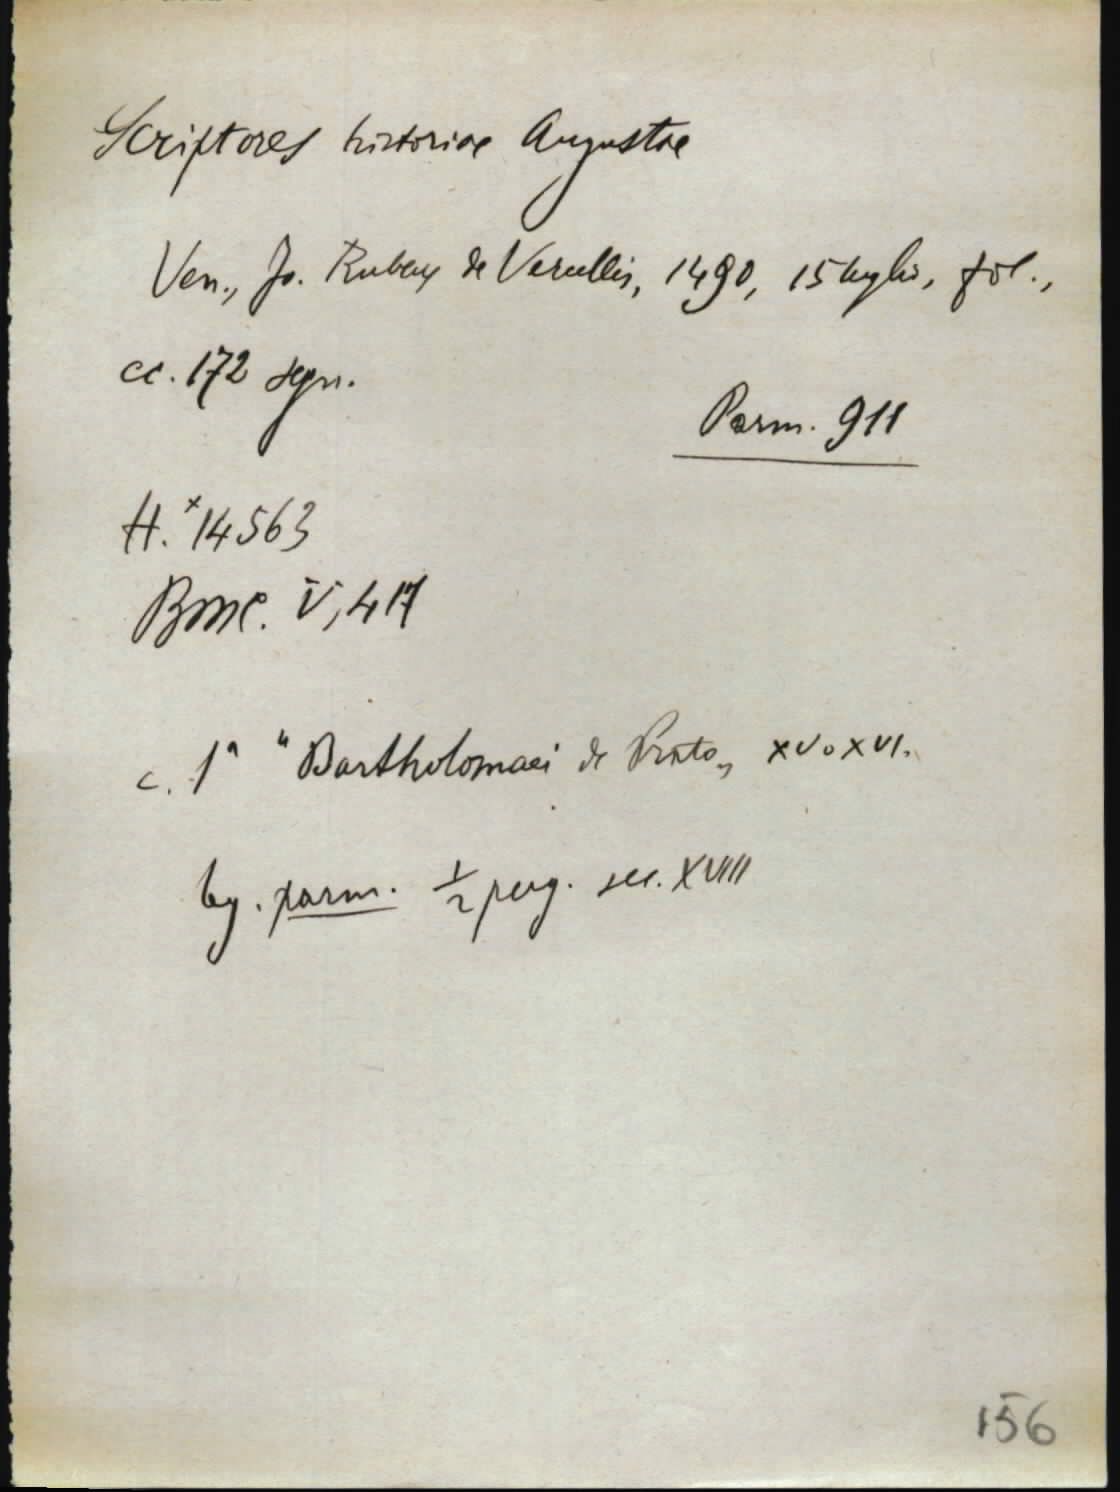 Scriptores historiae Augustae
Ven., Jo. Rubeus de Vercellis, 1490, 15 luglio, fol.,
cc. 172 segn.
Parm. 911
H. *14563
BMC. V, 417
c. 1ª "Bartholomaei de Prato„ XV o XVI.
leg. parm. ½ perg. sec. XVIII
156